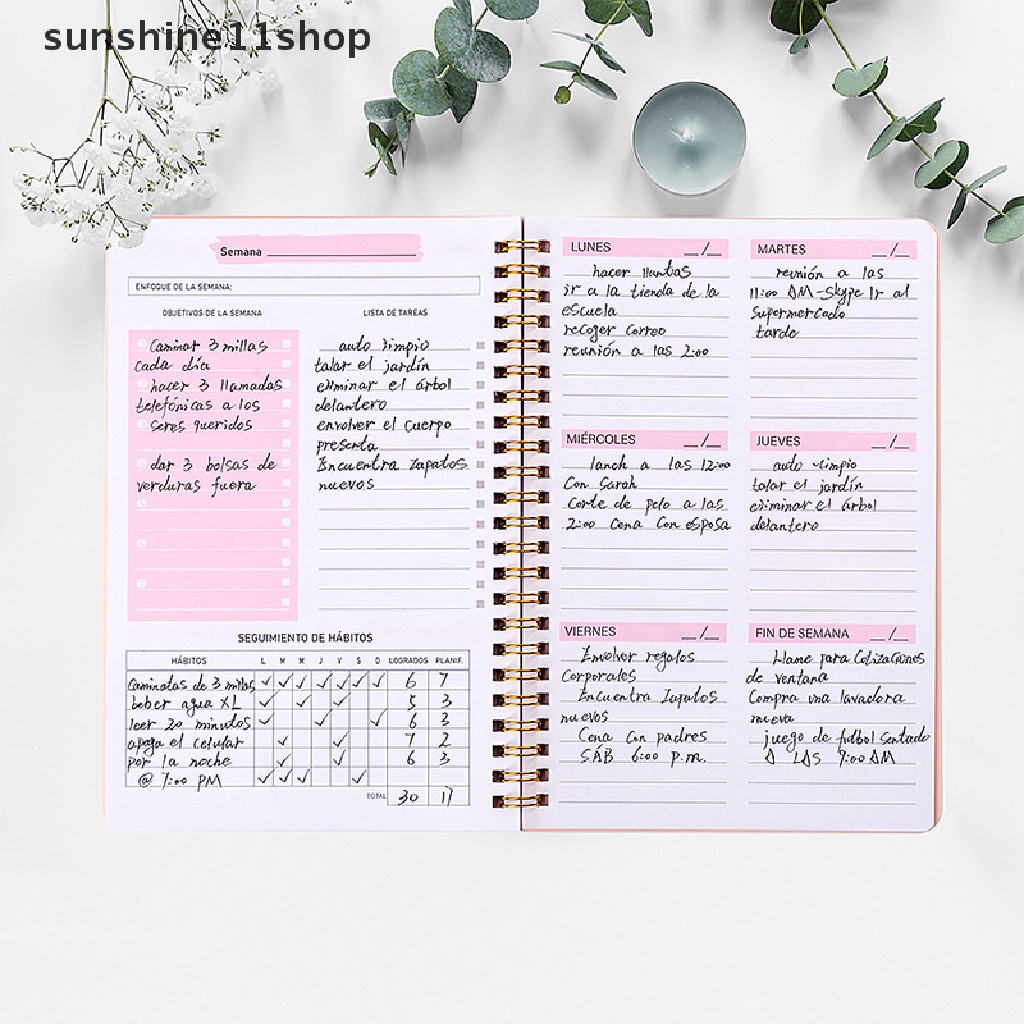 sunshine11shop
Semana
ENFOQUE DE LA SEMANA:
OBJETIVOS DE LA SEMANA
Caminar 3 millas
cada día
hacer 3 llamadas
telefónicas a los
seres queridos
dar 3 bolsas de
verduras fuera
5
6
7
LISTA DE TAREAS
auto limpio
talar el jardín
eliminar el árbol
delantero
envolver el cuerpo
presenta
Encuentra zapatos
nuevos
SEGUIMIENTO DE HÁBITOS
HÁBITOS L M M J V S D LOGRADOS PLANIF.
Caminatas de 3 millas ✓ ✓ ✓ ✓ ✓ ✓ ✓ 6 7
beber agua XL ✓ ✓ ✓ 5 3
leer 20 minutos ✓ ✓ ✓ 6 3
apaga el celular ✓ ✓ 7 2
por la noche ✓ ✓ 6 3
@ 7:00 PM ✓ ✓ ✓ ✓
TOTAL 30 17
LUNES __/__
hacer llantas
ir a la tienda de la
escuela
recoger correo
reunión a las 2:00
MARTES __/__
reunión a las
11:00 AM-Skype Ir al
supermercado
tarde
MIÉRCOLES __/__
lanch a las 12:00
Con Sarah
Corte de pelo a las
2:00 Cena Con esposa
JUEVES __/__
auto limpio
talar el jardín
eliminar el árbol
delantero
VIERNES __/__
Envolver regalos
Corporales
Encuentra Zapatos
nuevos
Cena Con padres
SÁB 6:00 P.m.
FIN DE SEMANA __/__
Llame para Cotizaciones
de ventana
Compra una lavadora
nueva
juego de futbol Sentado
A LAS 9:00 AM